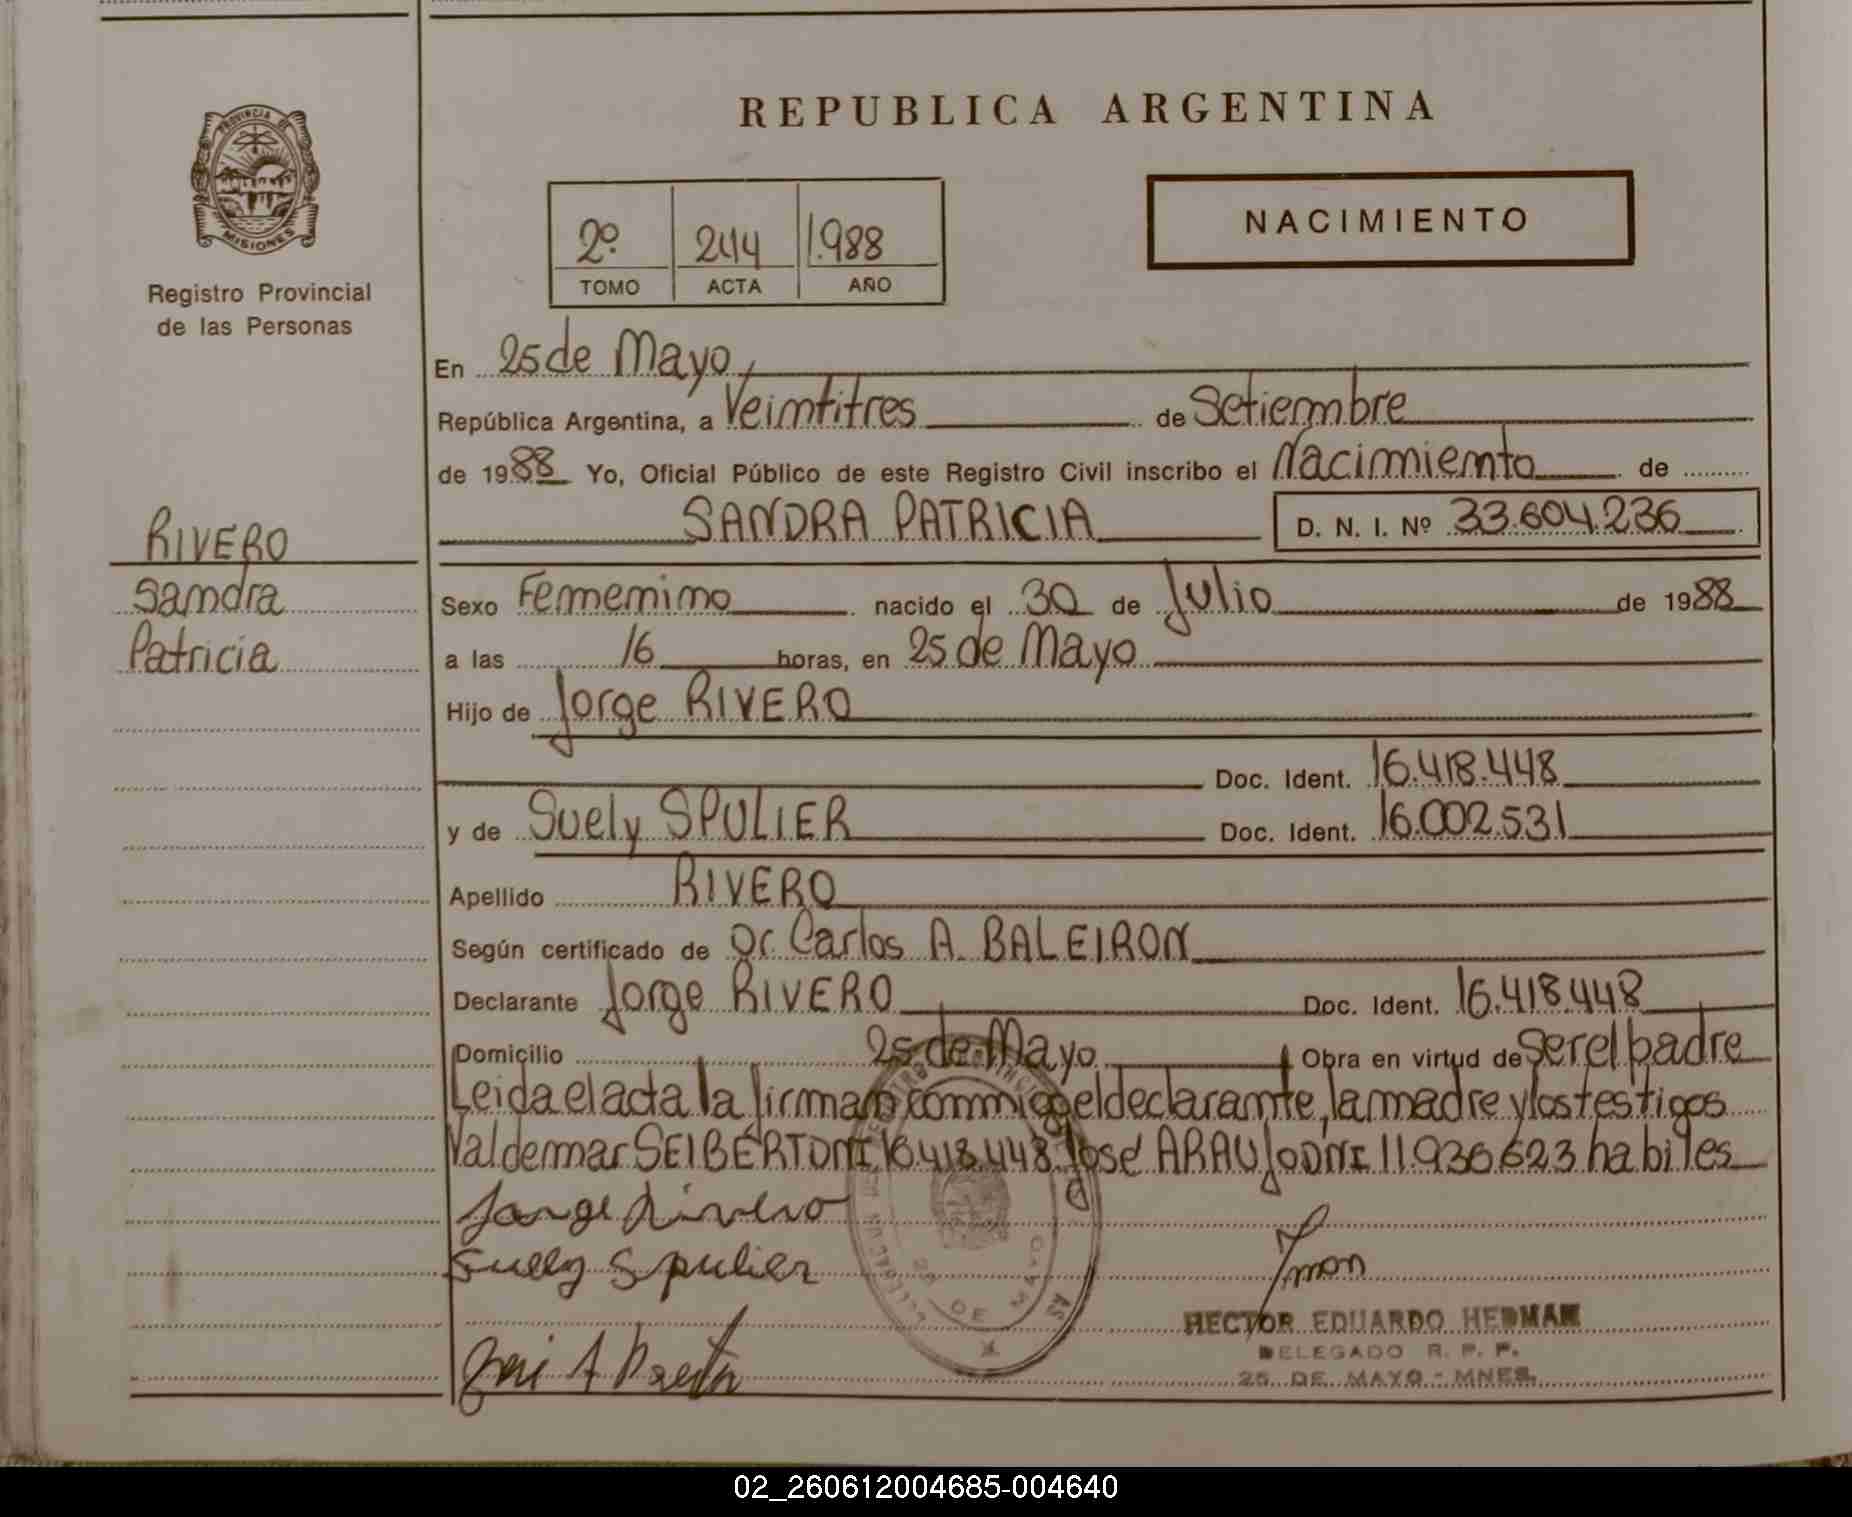 REPUBLICA ARGENTINA
PROVINCIA DE
MISIONES
Registro Provincial
de las Personas
2º 244 1.988
TOMO ACTA AÑO
NACIMIENTO
En 25 de Mayo,
República Argentina, a Veintitres de Setiembre
de 1988 Yo, Oficial Público de este Registro Civil inscribo el Nacimiento de
SANDRA PATRICIA D. N. I. Nº 33.604.236
RIVERO
Sandra
Patricia
Sexo Femenino nacido el 30 de Julio de 1988
a las 16 horas, en 25 de Mayo
Hijo de Jorge RIVERO
Doc. Ident. 16.418.448
y de Suely SPULIER Doc. Ident. 16.002.531
Apellido RIVERO
Según certificado de Dr. Carlos A. BALEIRON
Declarante Jorge RIVERO Doc. Ident. 16.418.448
Domicilio 25 de Mayo Obra en virtud de ser el padre
Leida el acta la firman conmigo el declarante, la madre y los testigos
Valdemar SEIBERT DNI 16.418.448 José ARAUJO DNI 11.936.623 habiles
Jorge Rivero
Suely Spulier
25 DE MAYO
HECTOR EDUARDO HEDMAN
DELEGADO R. P. P.
25 DE MAYO - MNES.
02_260612004685-004640